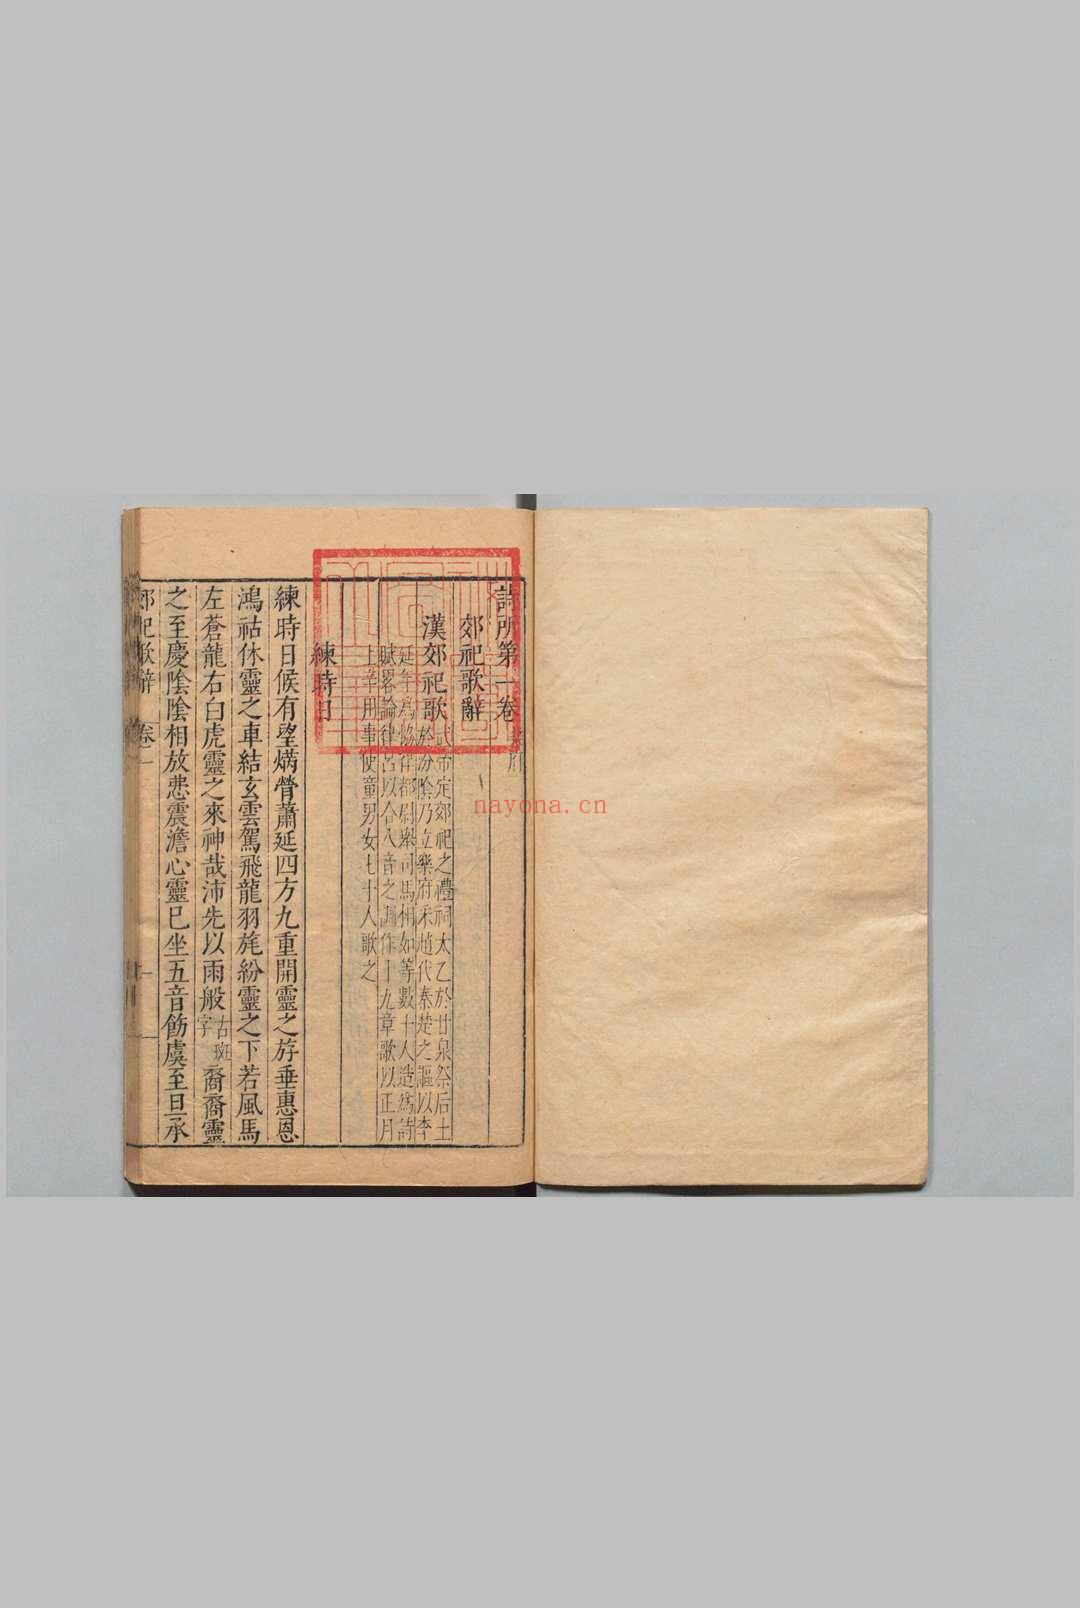 詩所第一卷
郊祀歌辭
漢郊祀歌
武帝定郊祀之禮祠太乙於甘泉祭后土
於汾陰乃立樂府采趙代秦楚之謳以李
延年為協律都尉舉司馬相如等數十人造為詩
賦畧論律呂以合八音之調作十九章歌以正月
上辛用事使童男女七十人歌之
練時日
練時日候有望焫膋蕭延四方九重開靈之斿垂惠恩
鴻祜休靈之車結玄雲駕飛龍羽旄紛靈之下若風馬
左蒼龍右白虎靈之來神哉沛先以雨般古班字裔裔靈
之至慶陰陰相放㤥震澹心靈已坐五音飭虞至旦承
郊祀歌辭 卷一 一
nayona.cn